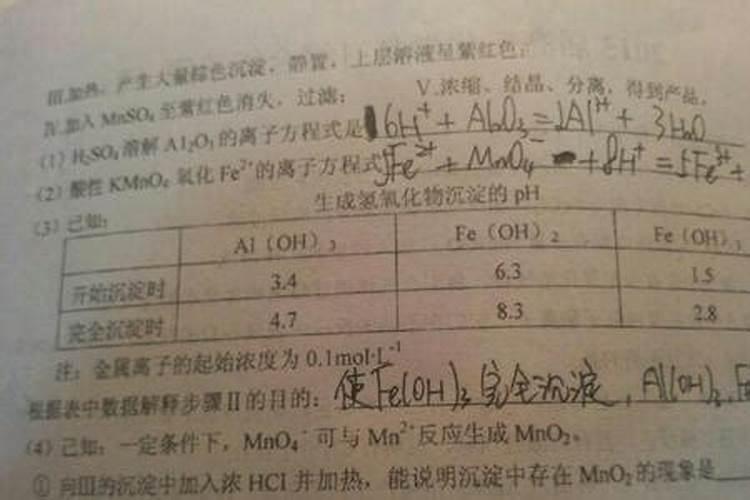 III.加热，产生大量棕色沉淀，静置，上层溶液呈紫红色；
IV.加入 MnSO₄ 至紫红色消失，过滤； V.浓缩、结晶、分离，得到产品。
(1) H₂SO₄ 溶解 Al₂O₃ 的离子方程式是 6H⁺ + Al₂O₃ = 2Al³⁺ + 3H₂O
(2) 酸性 KMnO₄ 氧化 Fe²⁺ 的离子方程式 5Fe²⁺ + MnO₄⁻ + 8H⁺ = 5Fe³⁺ +
(3) 已知：
生成氢氧化物沉淀的 pH
Al (OH)₃ Fe (OH)₂ Fe (OH)₃
开始沉淀时 3.4 6.3 1.5
完全沉淀时 4.7 8.3 2.8
注：金属离子的起始浓度为 0.1mol·L⁻¹
根据表中数据解释步骤 II 的目的：使Fe(OH)₃完全沉淀，Al(OH)₃
(4) 己知：一定条件下，MnO₄⁻ 可与 Mn²⁺ 反应生成 MnO₂。
① 向 III 的沉淀中加入浓 HCl 并加热，能说明沉淀中存在 MnO₂ 的现象是